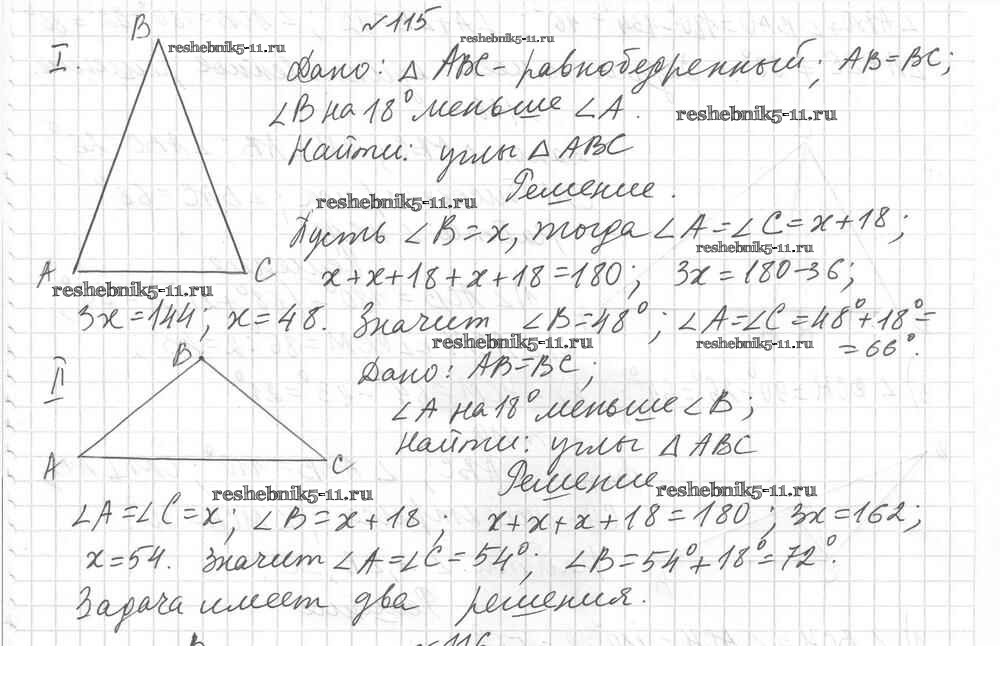 №115
B
I.
reshebnik5-11.ru
reshebnik5-11.ru
Дано: △ ABC - равнобедренный; AB=BC;
∠B на 18° меньше ∠A.
reshebnik5-11.ru
Найти: углы △ ABC
Решение.
reshebnik5-11.ru
Пусть ∠B=x, тогда ∠A=∠C=x+18;
reshebnik5-11.ru
A C
x+x+18+x+18=180; 3x=180-36;
reshebnik5-11.ru
3x=144; x=48. Значит ∠B=48°; ∠A=∠C=48°+18°=
=66°.
reshebnik5-11.ru
reshebnik5-11.ru
II
B
Дано: AB=BC;
∠A на 18° меньше ∠B;
Найти: углы △ ABC
A C
Решение
reshebnik5-11.ru
reshebnik5-11.ru
∠A=∠C=x; ∠B=x+18; x+x+x+18=180; 3x=162;
x=54. Значит ∠A=∠C=54°; ∠B=54°+18°=72°.
Задача имеет два решения.
B
№116